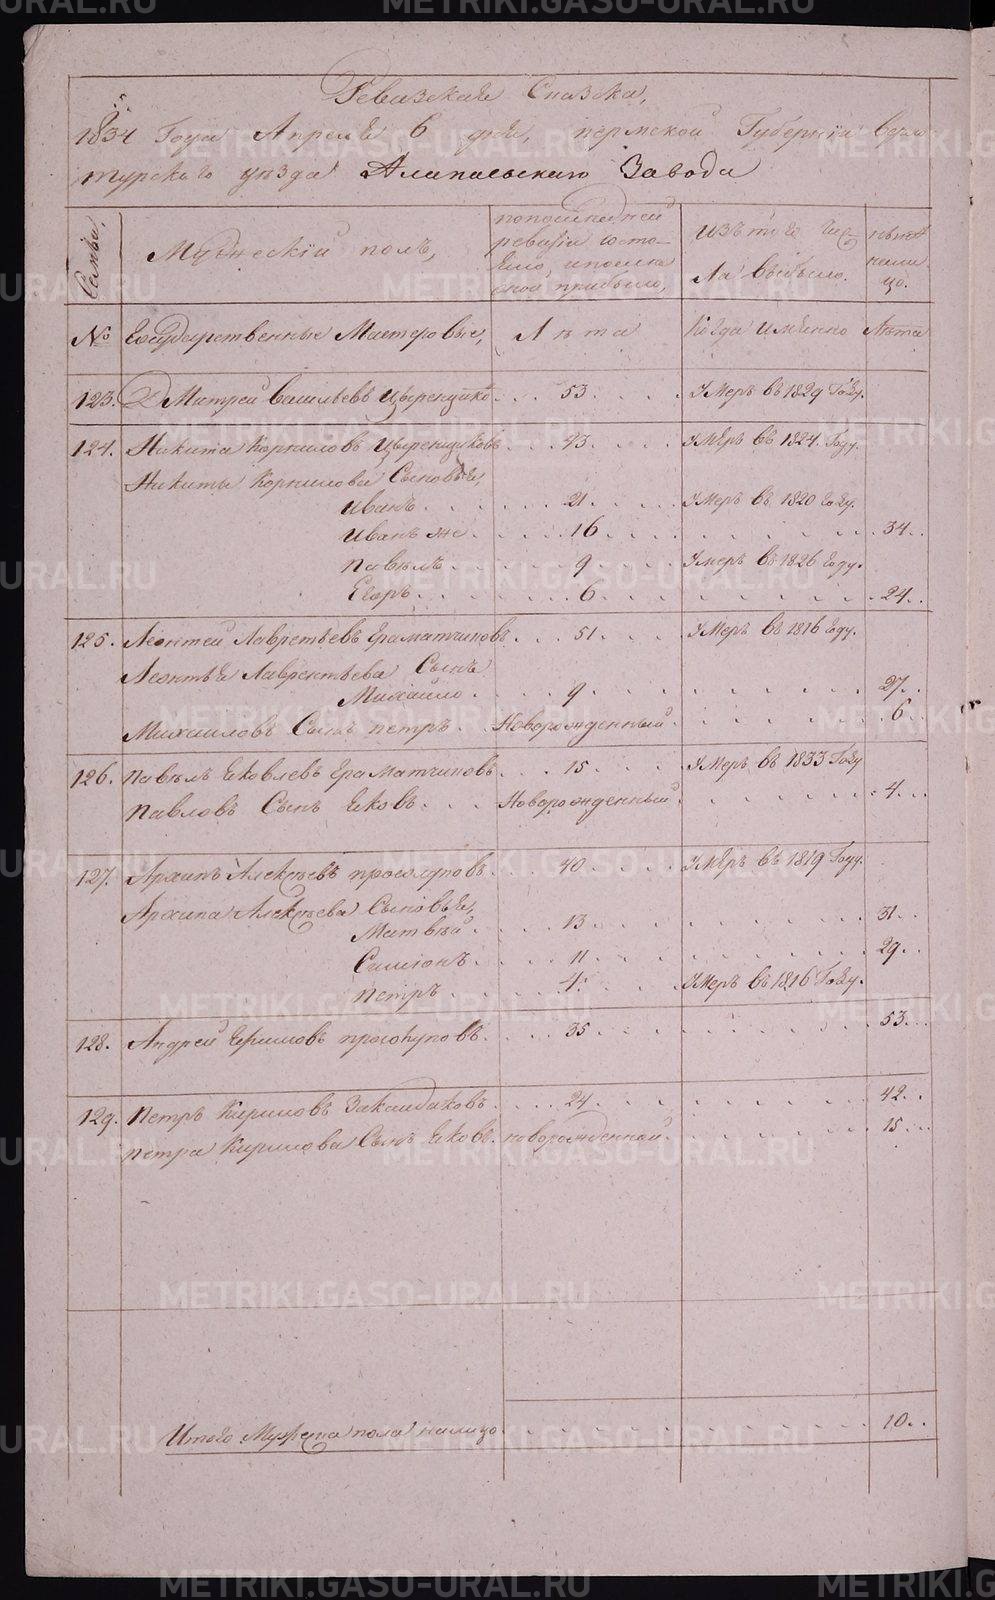 Ревизская Сказка,
1834 Года Апреля 6 дня, пермской Губернии верхо
турскаго уезда Алапаевскаго Завода
Семьи,
Мужеский полъ,
по последней
ревизии состо-
яло, и после
оной прибыло,
Изъ того чи-
сла выбыло.
ныне
нали
цо.
№ Государственные Мастеровые, Лета Когда имянно Лета
123. Дмитрей Васильевъ 53. Умеръ въ 1829 Году.
124. Никита Корниловъ 43. Умеръ въ 1824. Году.
Никиты Корнилова Сыновья,
Иванъ 21. Умеръ въ 1820 Году.
Иванъ же 16. 34.
Павелъ 9. Умеръ въ 1826 Году.
Егоръ 6. 24.
125. Леонтей Лаврентьевъ Ераматчиковъ 51. Умеръ въ 1816 Году.
Леонтья Лаврентьева Сынъ
Михайло 9. 27.
Михаиловъ Сынъ петръ Новорожденный. 6.
126. Павелъ Яковлевъ Ераматчиковъ 15. Умеръ въ 1833 Году
Павловъ Сынъ Яковъ Новорожденный. 4.
127. Архипъ Алексеевъ 40. Умеръ въ 1819 Году.
Архипа Алексеева Сыновья,
Матвей 13. 31.
Симионъ 11. 29.
петръ 4. Умеръ въ 1816 Году.
128. Андрей 35. 53.
129. Петръ Кириловъ 24. 42.
петра Кирилова Сынъ Яковъ новорожденной. 15.
Итого Мужеска пола налицо 10.
METRIKI.GASO-URAL.RU